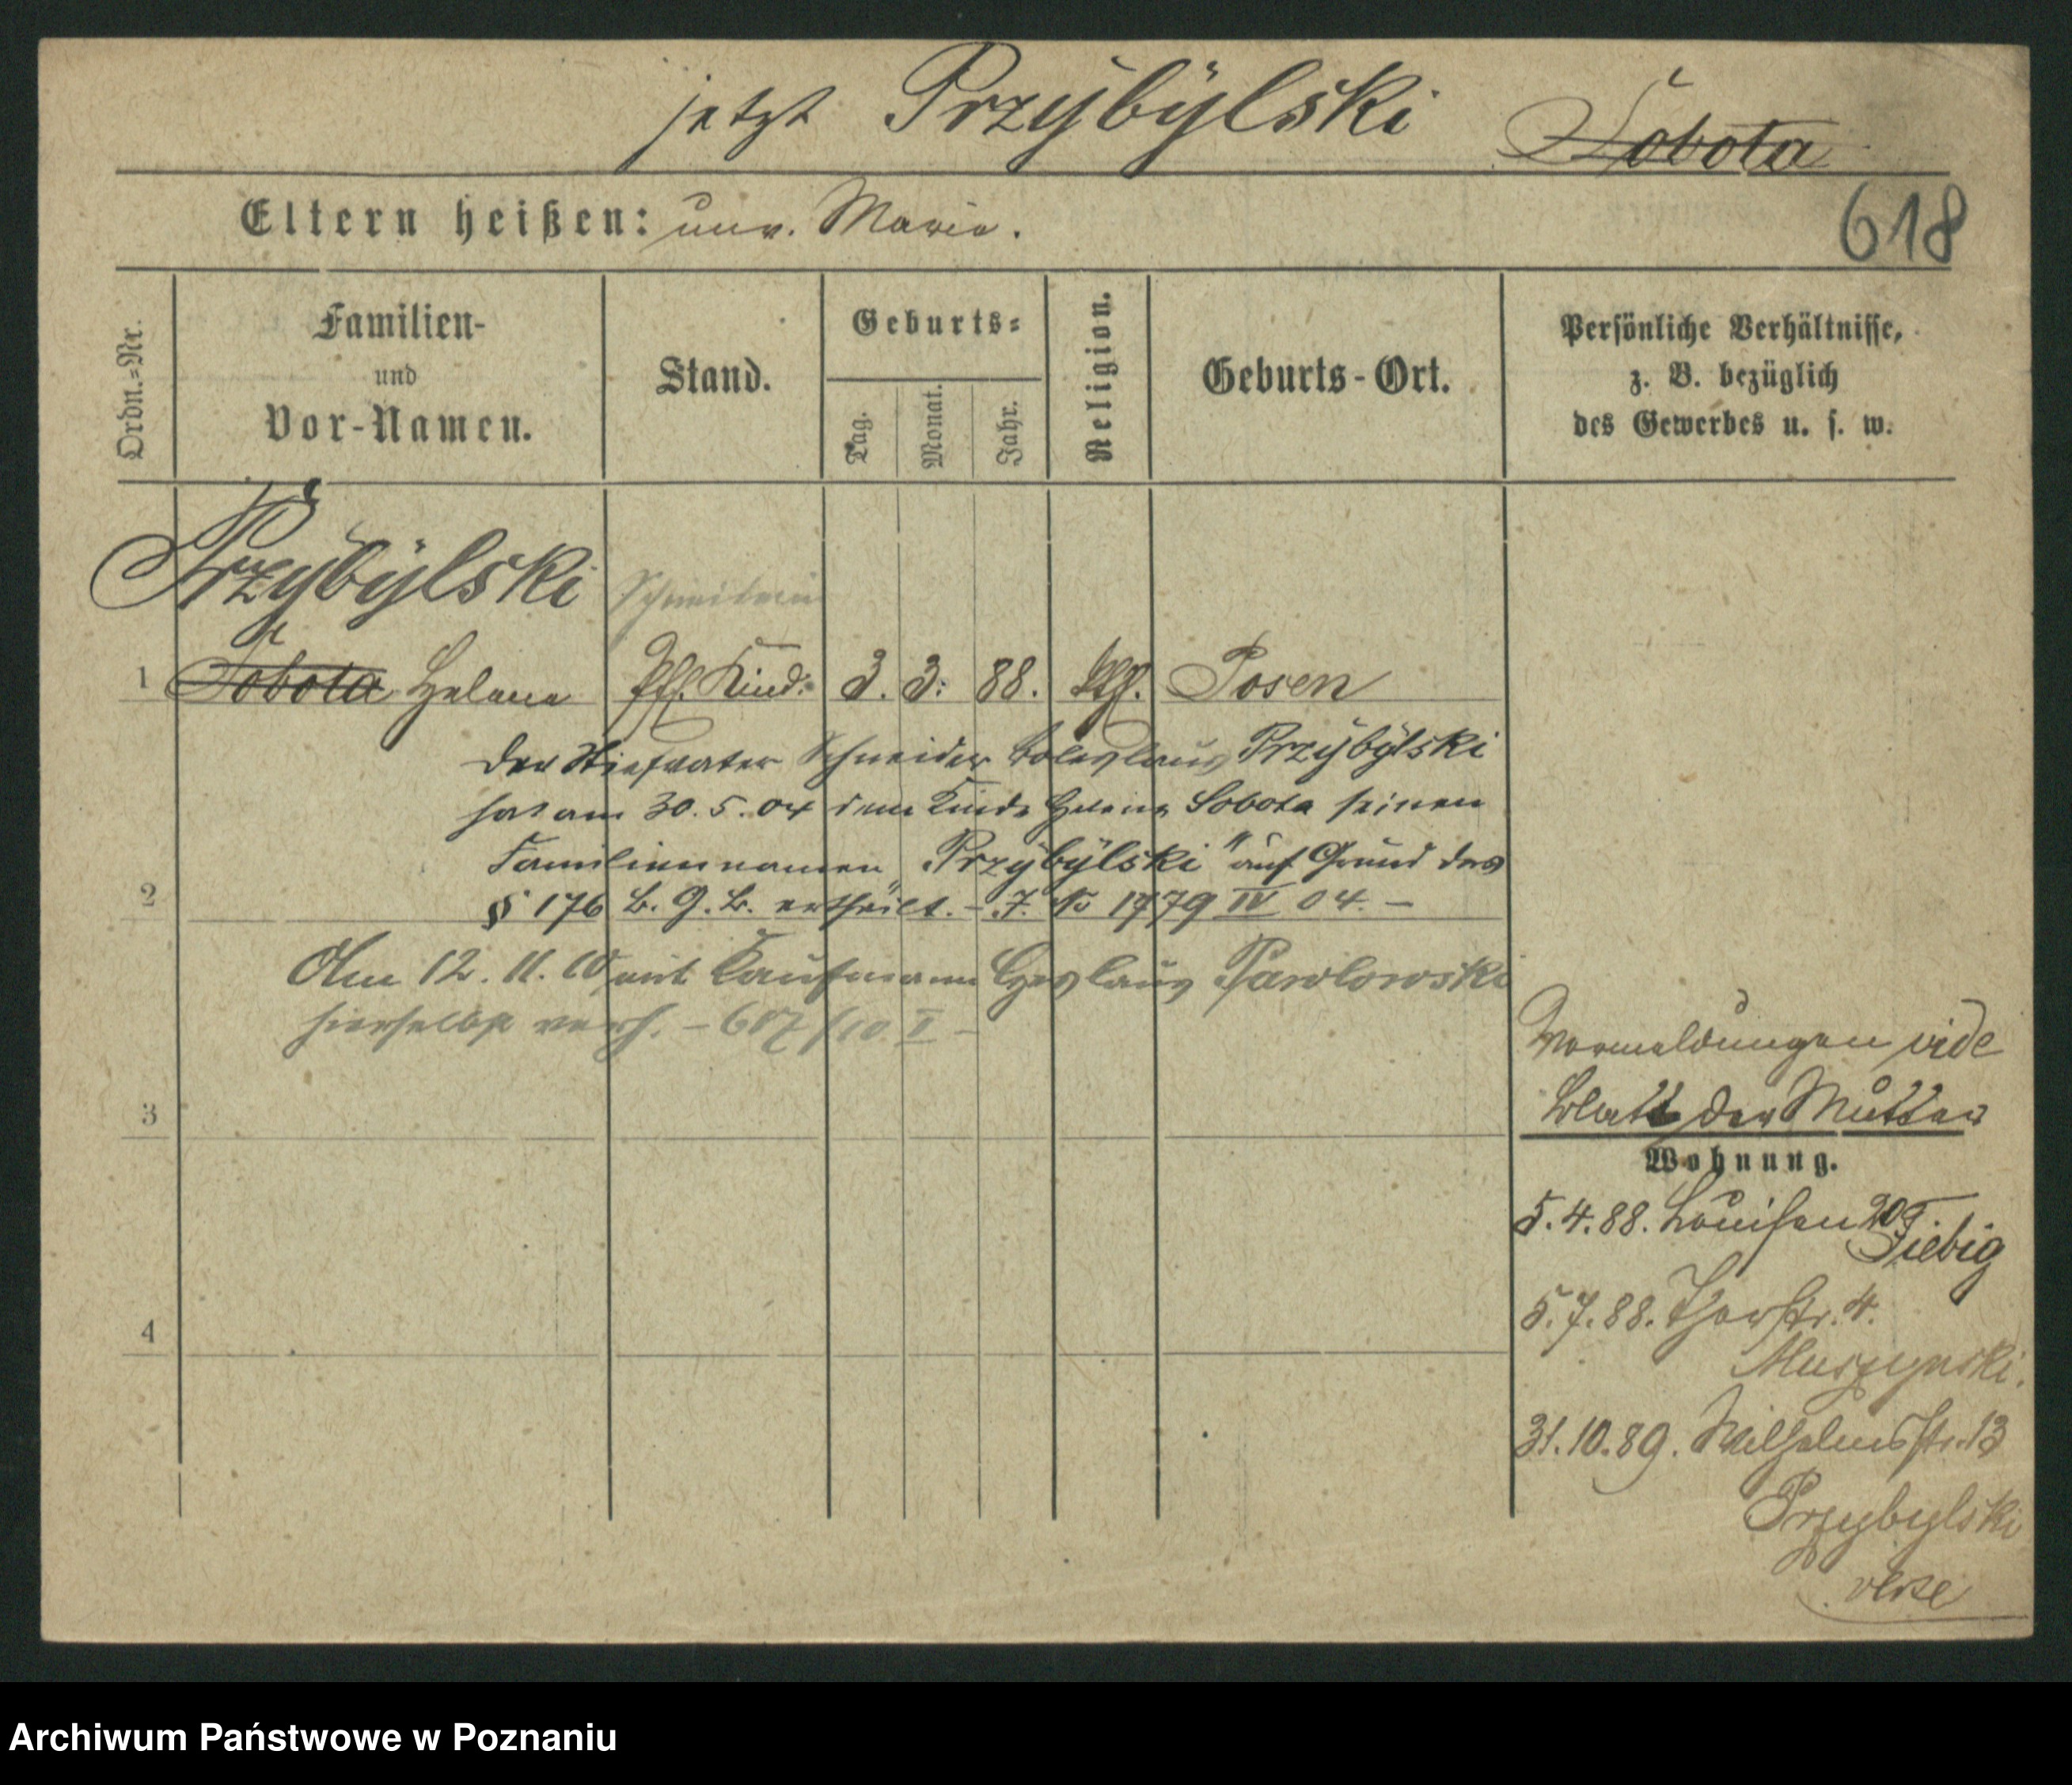 jetzt Przybylski Sobota
Eltern heißen: unv. Maria.
618
Ordn.=Nr.
Familien-
und
Vor-Namen.
Stand.
Geburts=
Tag.
Monat.
Jahr.
Religion.
Geburts-Ort.
Persönliche Verhältnisse,
z. B. bezüglich
des Gewerbes u. s. w.
Przybylski
Schneiderin
1 Sobota Helene Pfl. Kind. 3. 3. 88. kth. Posen
Der Stiefvater Schneider Boleslaus Przybylski
hat am 30.5.04 dem Kinde Helene Sobota seinen
Familiennamen „Przybylski" auf Grund des
2
§ 1706 B.G.B. ertheilt. - J. No 1779 IV 04. -
Am 12.11.10 mit Kaufmann Czeslaus Pawlowski
hierselbst verh. - 687/10 I -
Vormeldungen vide
Blatt der Mutter
3
Wohnung.
5.4.88. Louisen 20
Fiebig
5.7.88. Thorstr. 4.
4
Muszynski.
31.10.89. Wilhelmsstr. 13
Przybylski